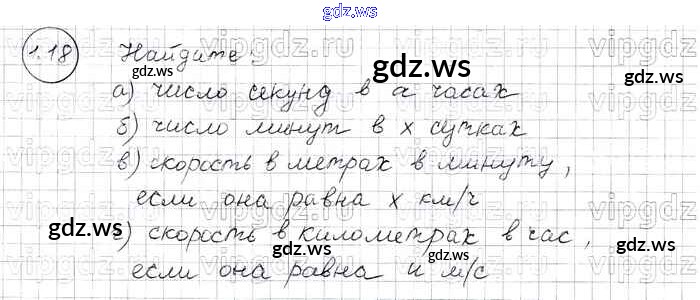 gdz.ws
1.18 Найдите:
gdz.ws gdz.ws
а) число секунд в а часах
б) число минут в х сутках
gdz.ws
в) скорость в метрах в минуту,
если она равна х км/ч
gdz.ws gdz.ws
г) скорость в километрах в час,
gdz.ws
если она равна и м/с